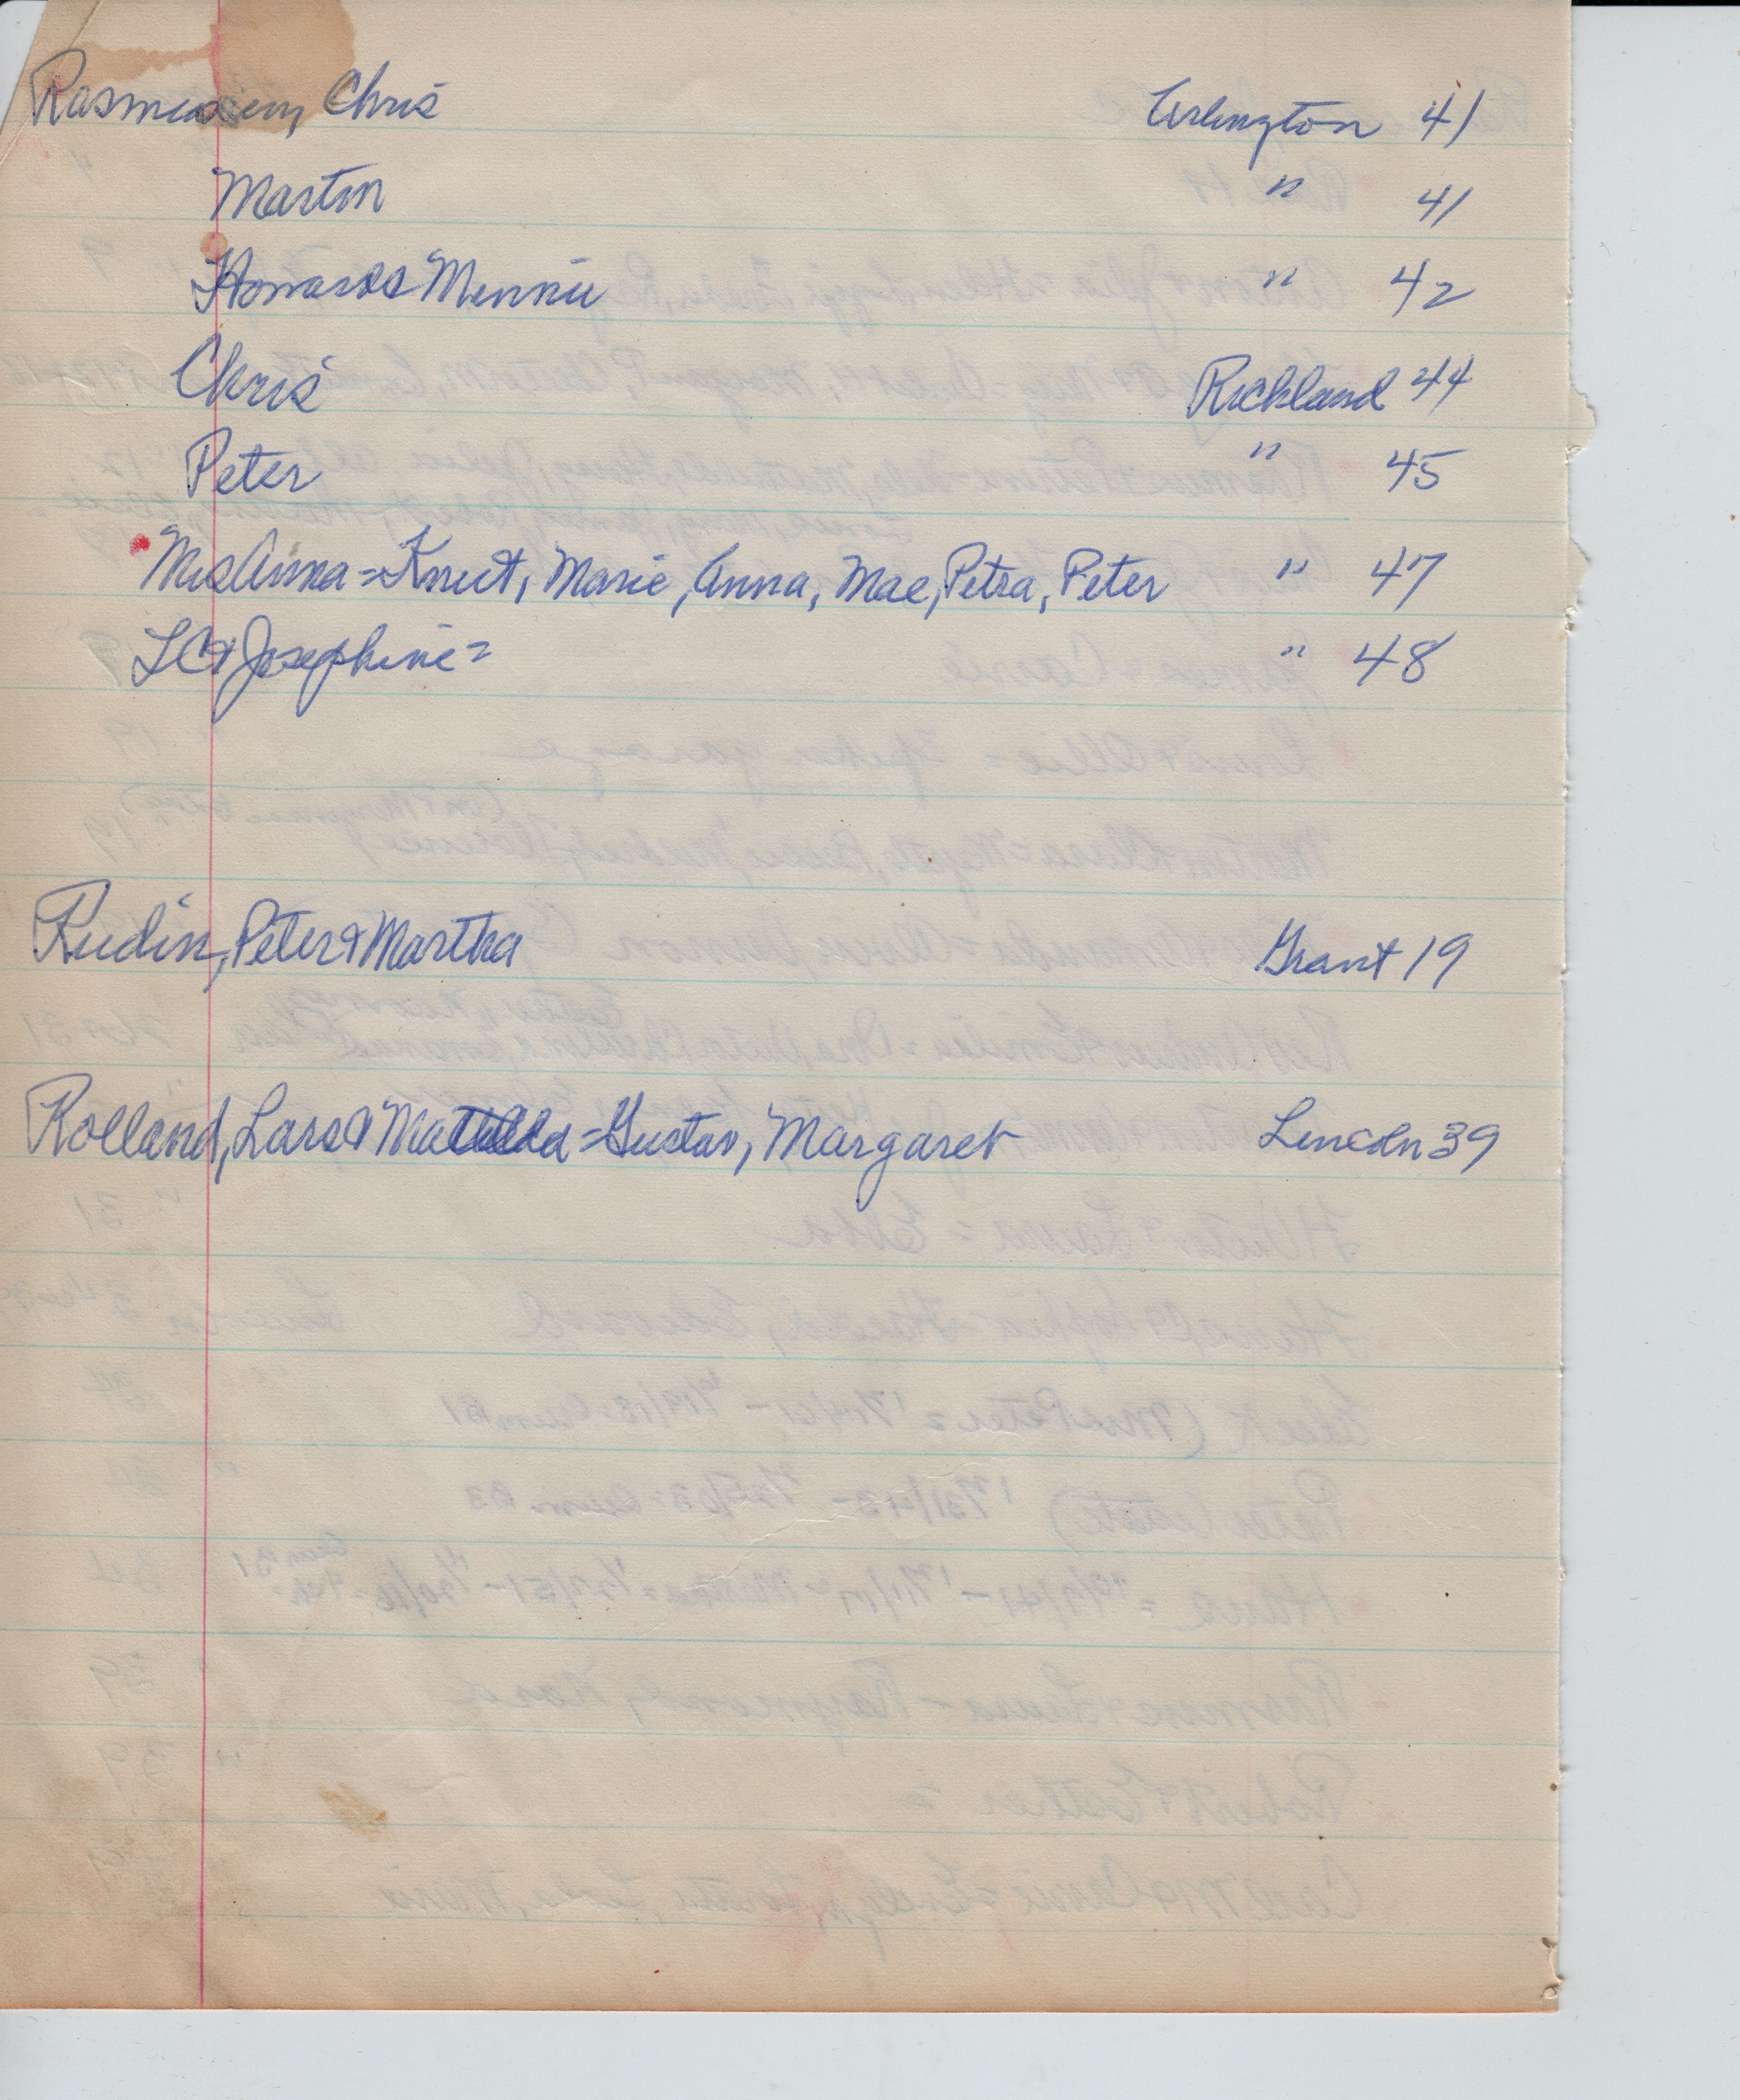 Rasmussen, Chris Arlington 41
Martin " 41
Howard & Minnie " 42
Chris Richland 44
Peter " 45
Mrs Anna = Knut, Marie, Anna, Mae, Petra, Peter " 47
L C & Josephine = " 48
Rudin, Peter & Martha Grant 19
Rolland, Lars & Matilda = Gustav, Margaret Lincoln 39